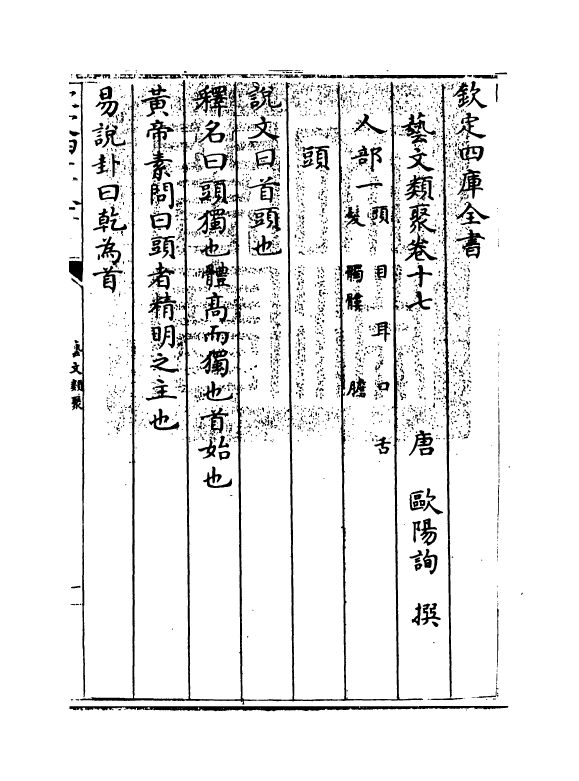 欽定四庫全書
藝文類聚卷十七
唐 歐陽詢 撰
人部一 頭 目 耳 口 舌
髮 髑髏 膽
頭
說文曰首頭也
釋名曰頭獨也體高而獨也首始也
黃帝素問曰頭者精明之主也
易說卦曰乾為首
藝文類聚
一